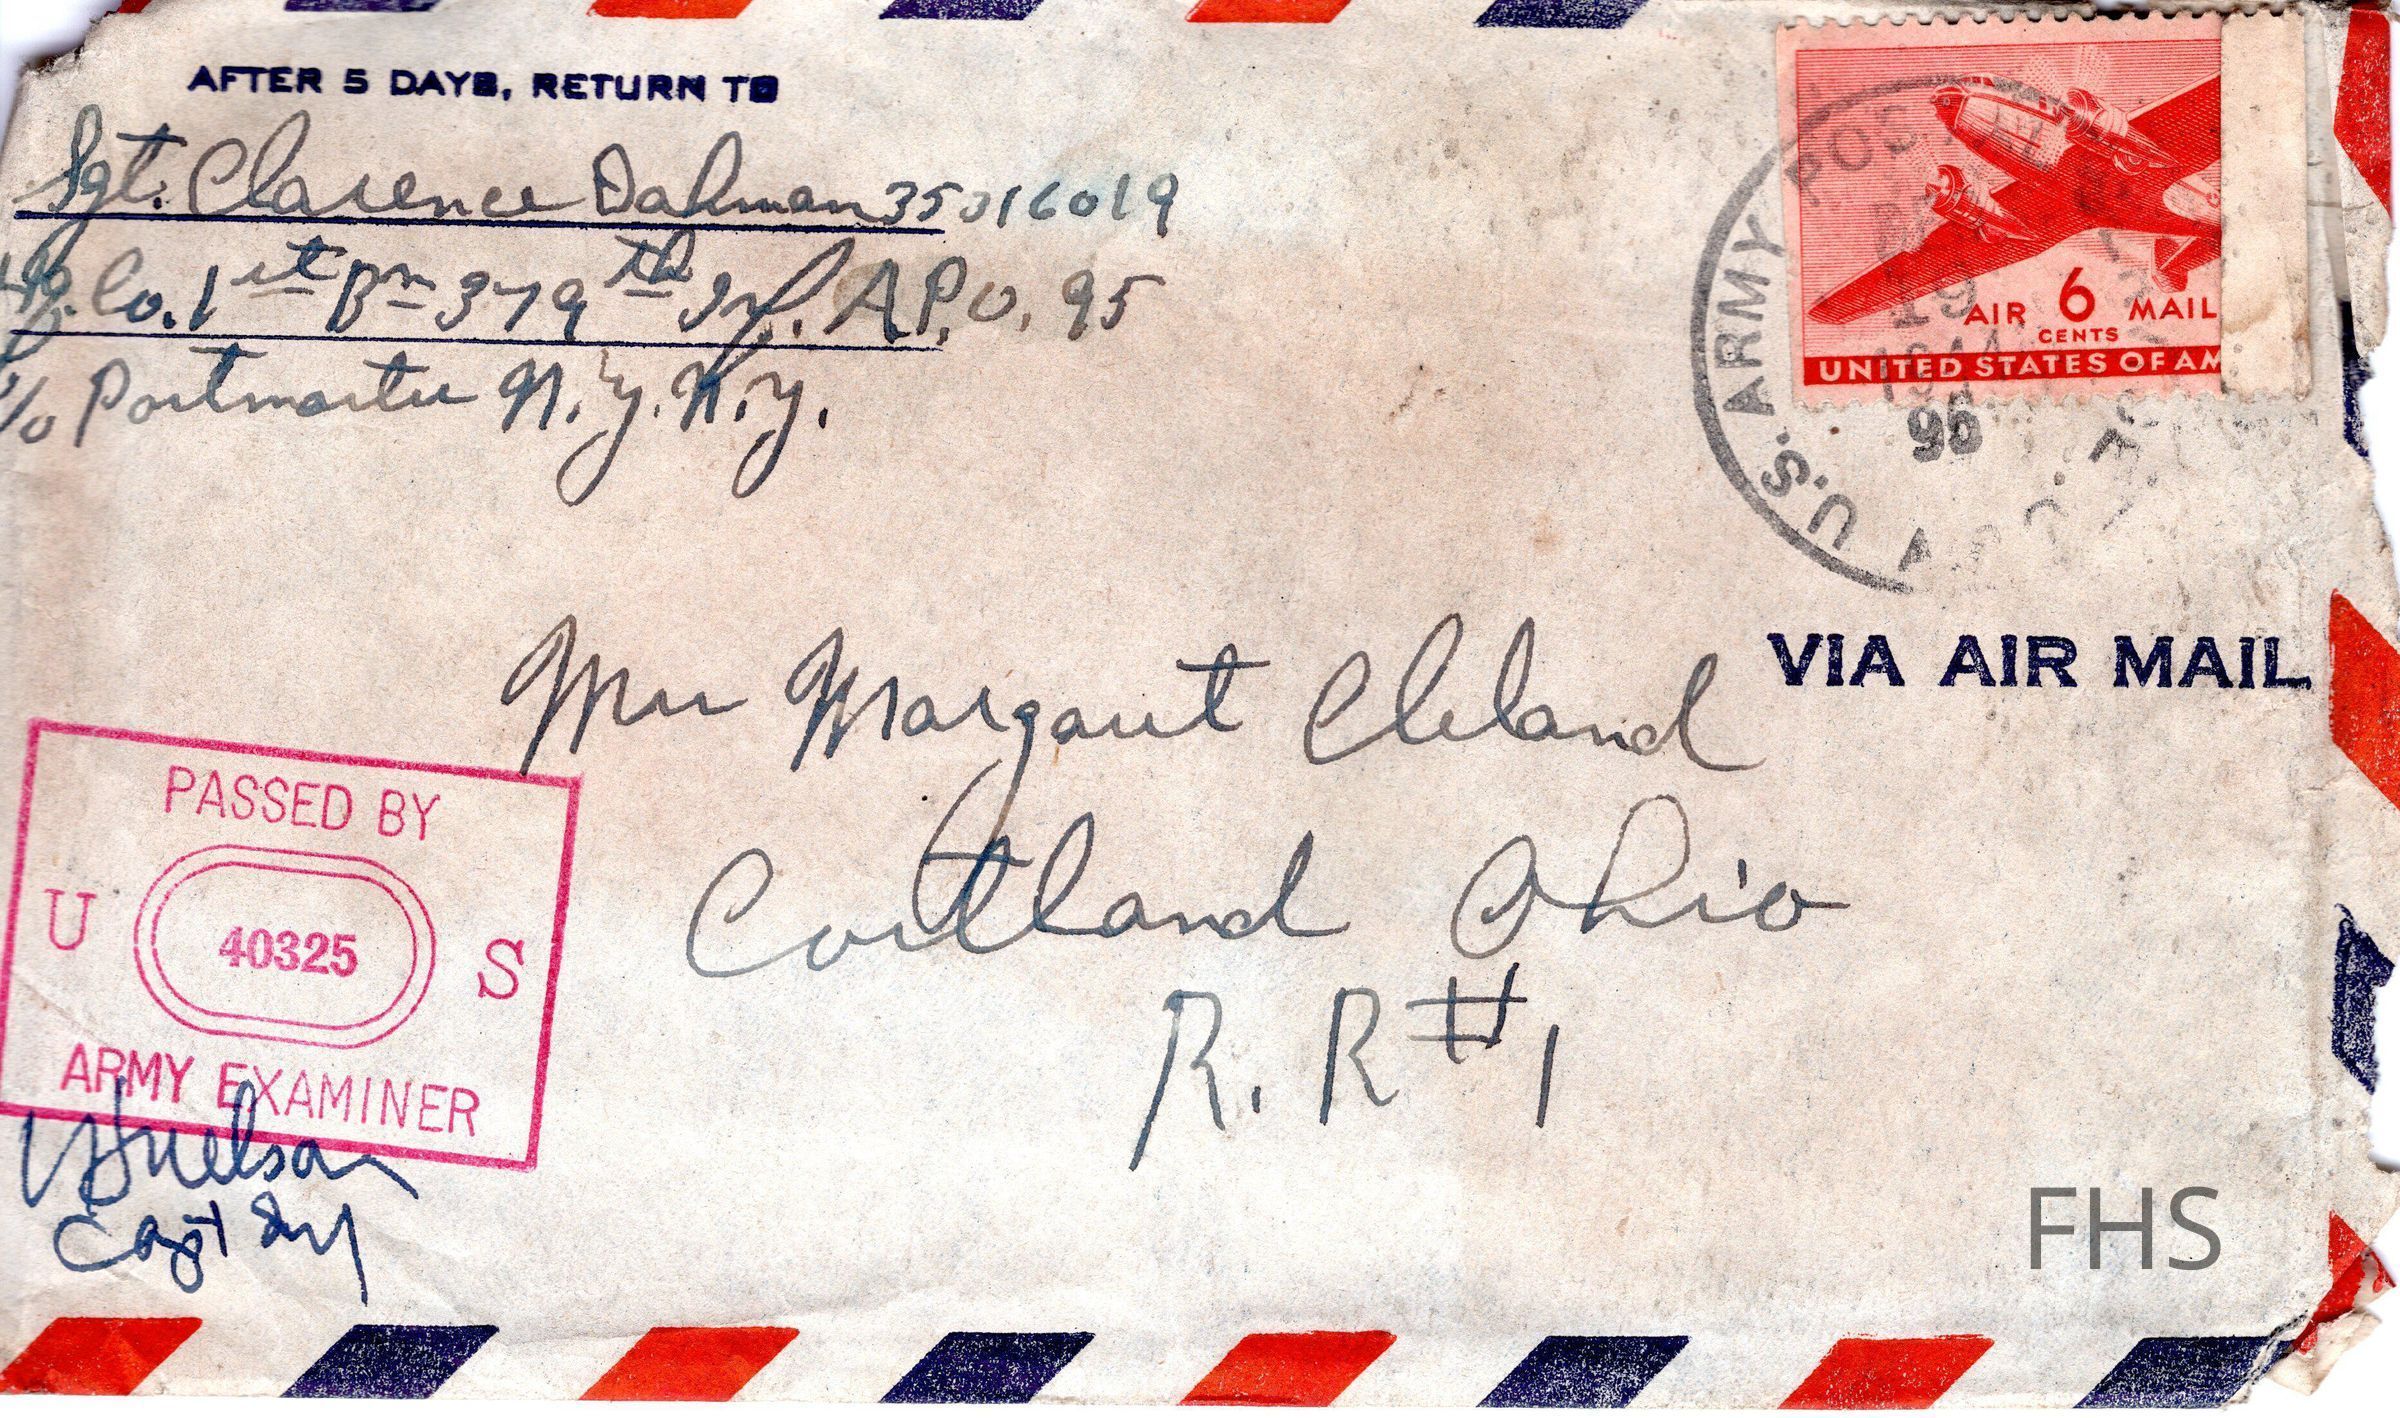 AFTER 5 DAYS, RETURN TO
Sgt. Clarence Dahman 35016019
Hq. Co. 1st Bn 379th Inf. A.P.O. 95
c/o Postmaster N.Y. N.Y.
U.S. ARMY POSTAL
19
1944
96
AIR 6 MAIL
CENTS
UNITED STATES OF AM
VIA AIR MAIL
Mrs Margaret Cleland
Cortland Ohio
R. R #1
PASSED BY
U 40325 S
ARMY EXAMINER
Capt Inf
FHS